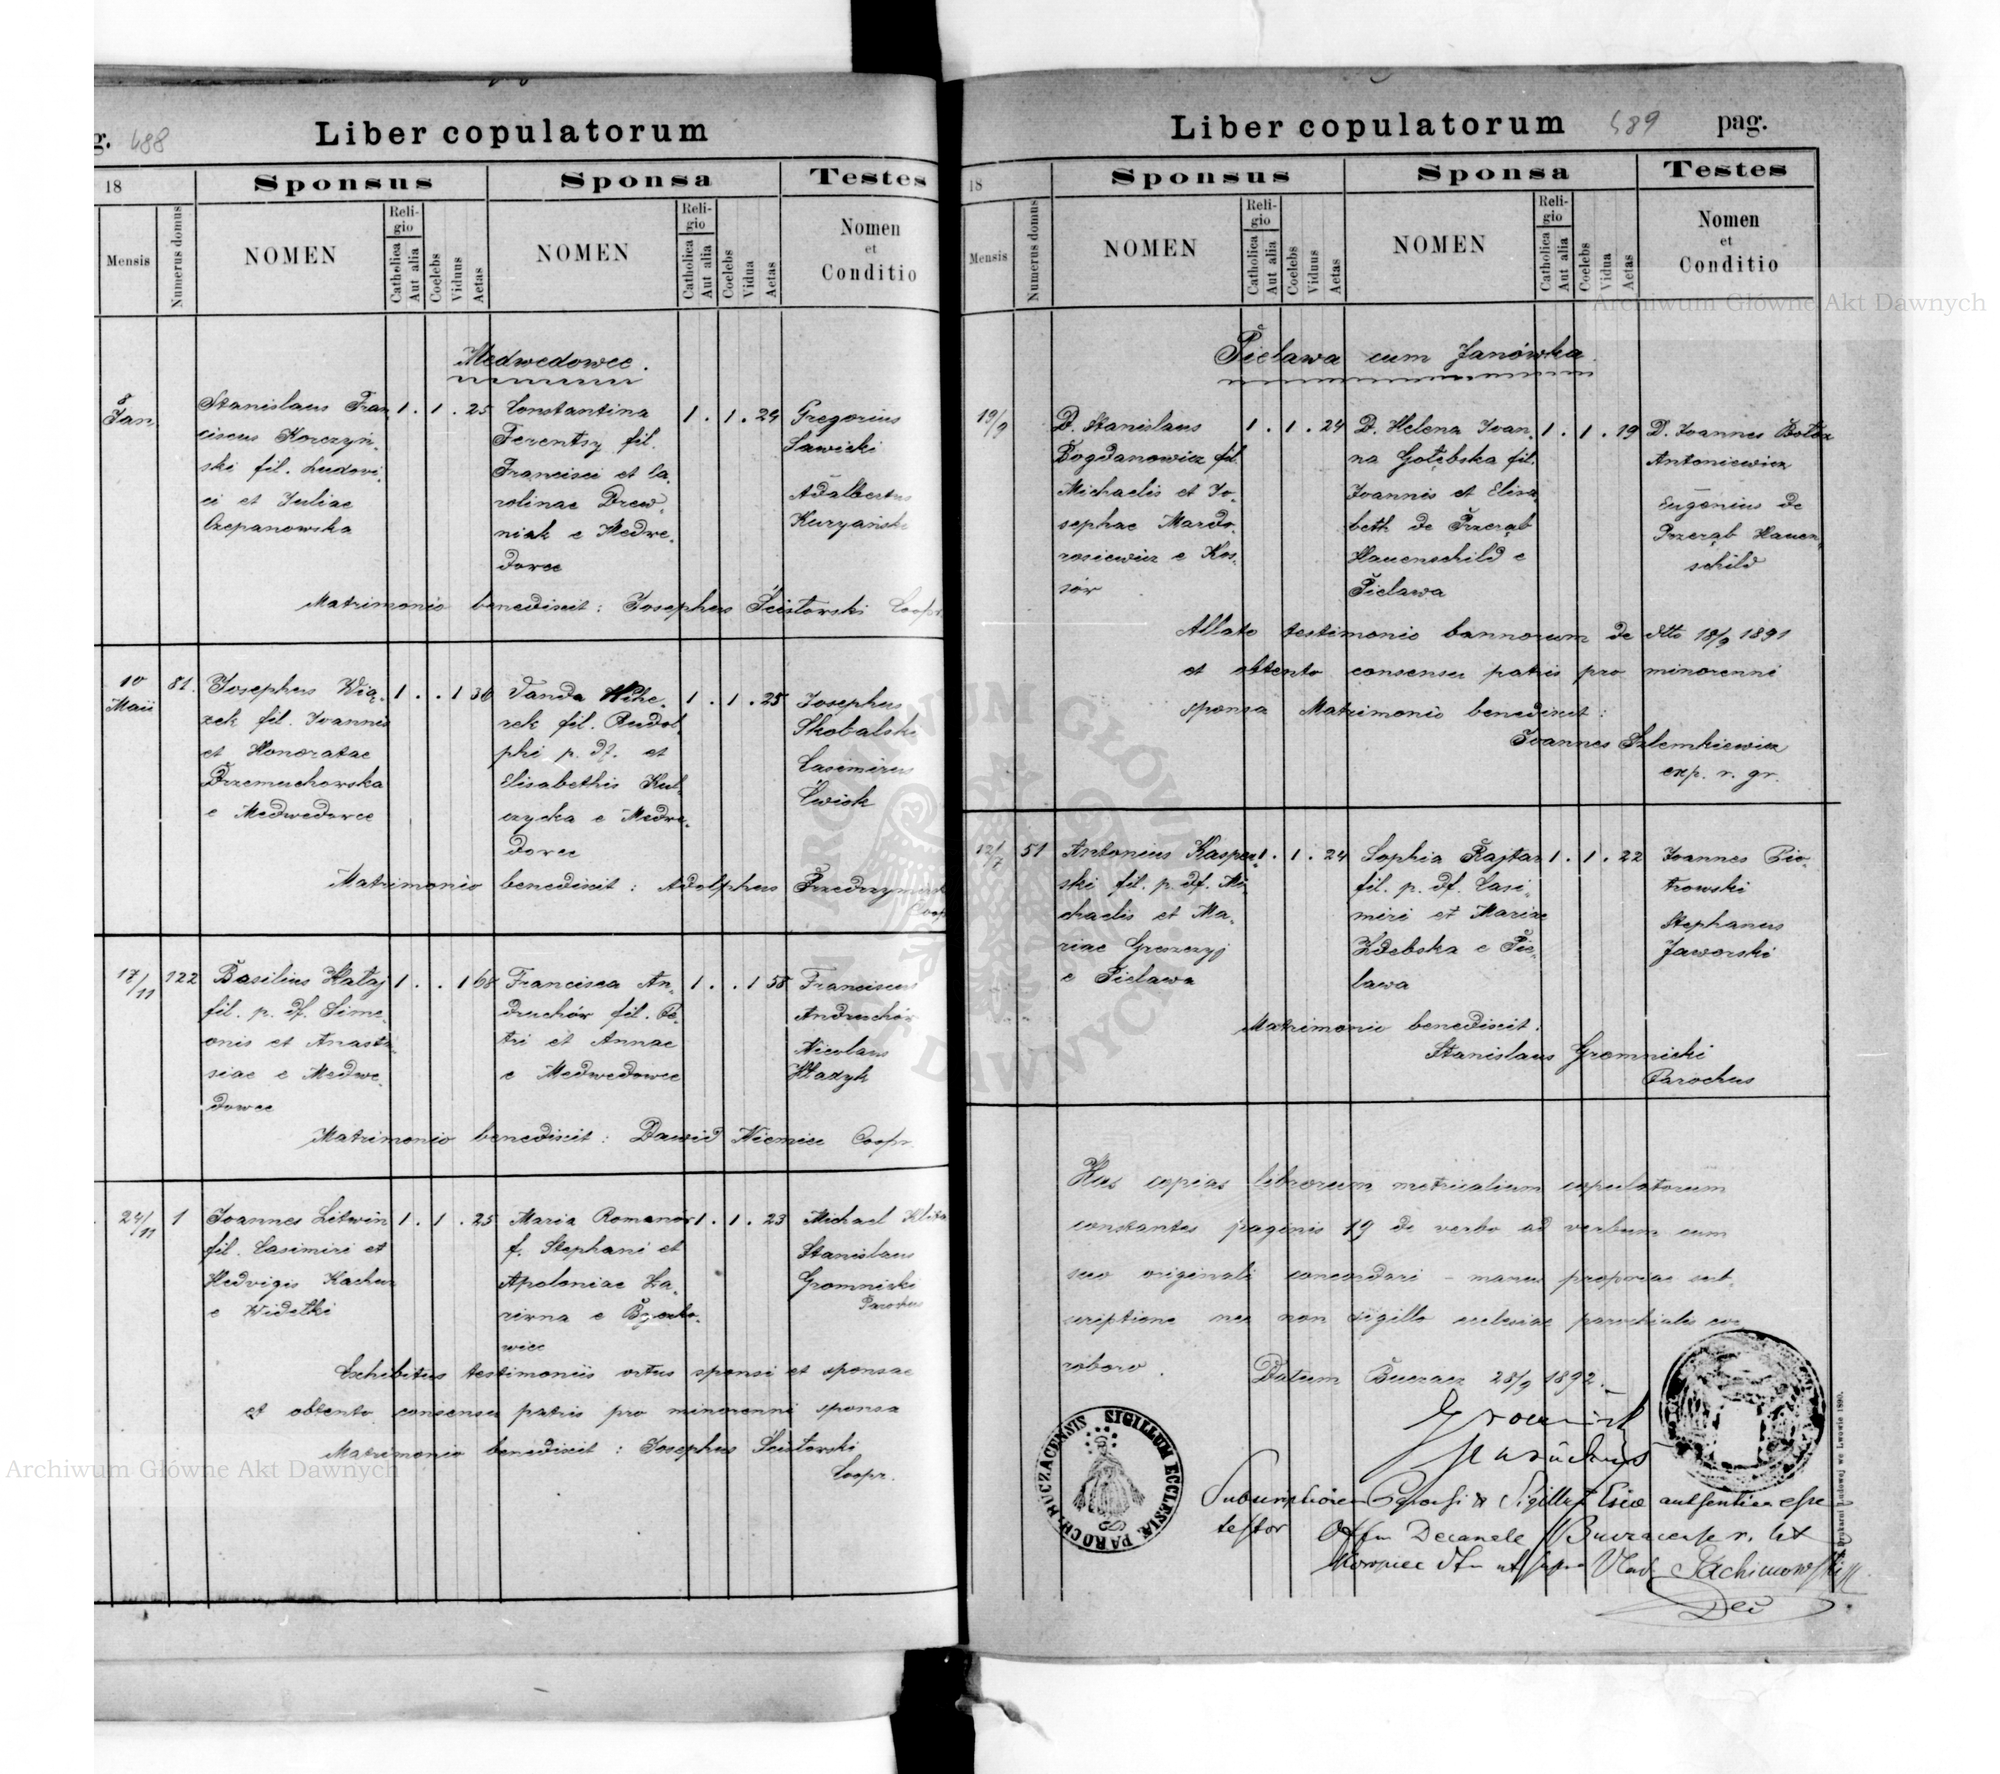 g. 488
Liber copulatorum
18
Sponsus
Sponsa
Testes
Mensis
Numerus domus
NOMEN
Religio
Catholica
Aut alia
Coelebs
Viduus
Aetas
NOMEN
Religio
Catholica
Aut alia
Coelebs
Vidua
Aetas
Nomen
et
Conditio
Medwedowce.
8
Jan.
Stanislaus Fran
ciscus Korczyń-
ski fil. Ludovi-
ci et Juliae
Czepanowska
1 . 1 . 25
Constantina
Ferentsy fil.
Francisci et Ca-
rolinae Drew-
niak e Medwe-
dowce
1 . 1 . 24
Gregorius
Sawicki
Adalbertus
Kuryański
Matrimonio benedixit: Josephus Ścisłowski Coopr.
10
Maii
81.
Josephus Wią-
zek fil. Joannis
et Honoratae
Brzemuchowska
e Medwedowce
1 . . 1 36
Vanda
rek fil. Rudol-
phi p. df. et
Elisabethis Kul-
czycka e Medwe-
dowce
1 . 1 . 25
Josephus
Skobalski
Casimirus
Ćwiok
Matrimonio benedixit: Adolphus
Coop
17/11
122
Basilius Hałaj
fil. p. df. Sime-
onis et Anasta-
siae e Medwe-
dowce
1 . . 1 68
Francisca An-
druchów fil. Pe-
tri et Annae
e Medwedowce
1 . . 1 58
Franciscus
Andruchów
Nicolaus
Matrimonio benedixit: Dawid Niemiec Coopr.
24/11
1
Joannes Litwin
fil. Casimiri et
Hedvigis Kachur
e Widełki
1 . 1 . 25
Maria Romanów
f. Stephani et
Apoloniae Za-
rivna e
wice
1 . 1 . 23
Michael
Stanislaus
Gromnicki
Parochus
Exhibitis testimoniis ortus sponsi et sponsae
et obtento consensu patris pro minorenni sponsa
Matrimonio benedixit: Josephus Ścisłowski
Coopr.
Liber copulatorum 489 pag.
18
Sponsus
Sponsa
Testes
Mensis
Numerus domus
NOMEN
Religio
Catholica
Aut alia
Coelebs
Viduus
Aetas
NOMEN
Religio
Catholica
Aut alia
Coelebs
Vidua
Aetas
Nomen
et
Conditio
Archiwum Główne Akt Dawnych
Pielawa cum Janówka.
19/9
D. Stanislaus
Bogdanowicz fil.
Michaelis et Jo-
sephae Mardo-
rosiewicz e Kos-
sów
1 . 1 . 24
D. Helena Joan-
na Gołębska fil.
Joannis et Elisa-
beth de Przerąb
Hauenschild e
Pielawa
1 . 1 . 19
D. Joannes Bołoz
Antoniewicz
Eugenius de
Przerąb Hauen-
schild
Allato testimonio bannorum de dtto 18/9 1891
et obtento consensu patris pro minorenni
sponsa Matrimonio benedixit:
Joannes Szlemkiewicz
exp. r. gr.
12/7
51
Antonius Kasper-
ski fil. p. df. Mi-
chaelis et Ma-
riae
e Pielawa
1 . 1 . 24
Sophia Rajtar
fil. p. df. Casi-
miri et Mariae
Zdebska e Pie-
lawa
1 . 1 . 22
Joannes Pio-
trowski
Stephanus
Jaworski
Matrimonio benedixit:
Stanislaus Gromnicki
Parochus
Has copias librorum metricalium copulatorum
constantes paginis 19 de verbo ad verbum cum
suo originali concordari - manus propriae sub-
scriptione nec non sigillo ecclesiae parochialis cor
roboro.
Datum Buczacz 28/9 1892.
Gromnicki
parochus
SIGILLUM ECCLESIÆ PAROCH. BUCZACENSIS
testor
Decanale
Dec
Drukarni Ludowej we Lwowie 1890.
ARCHIWUM GŁÓWNE AKT DAWNYCH
Archiwum Główne Akt Dawnych